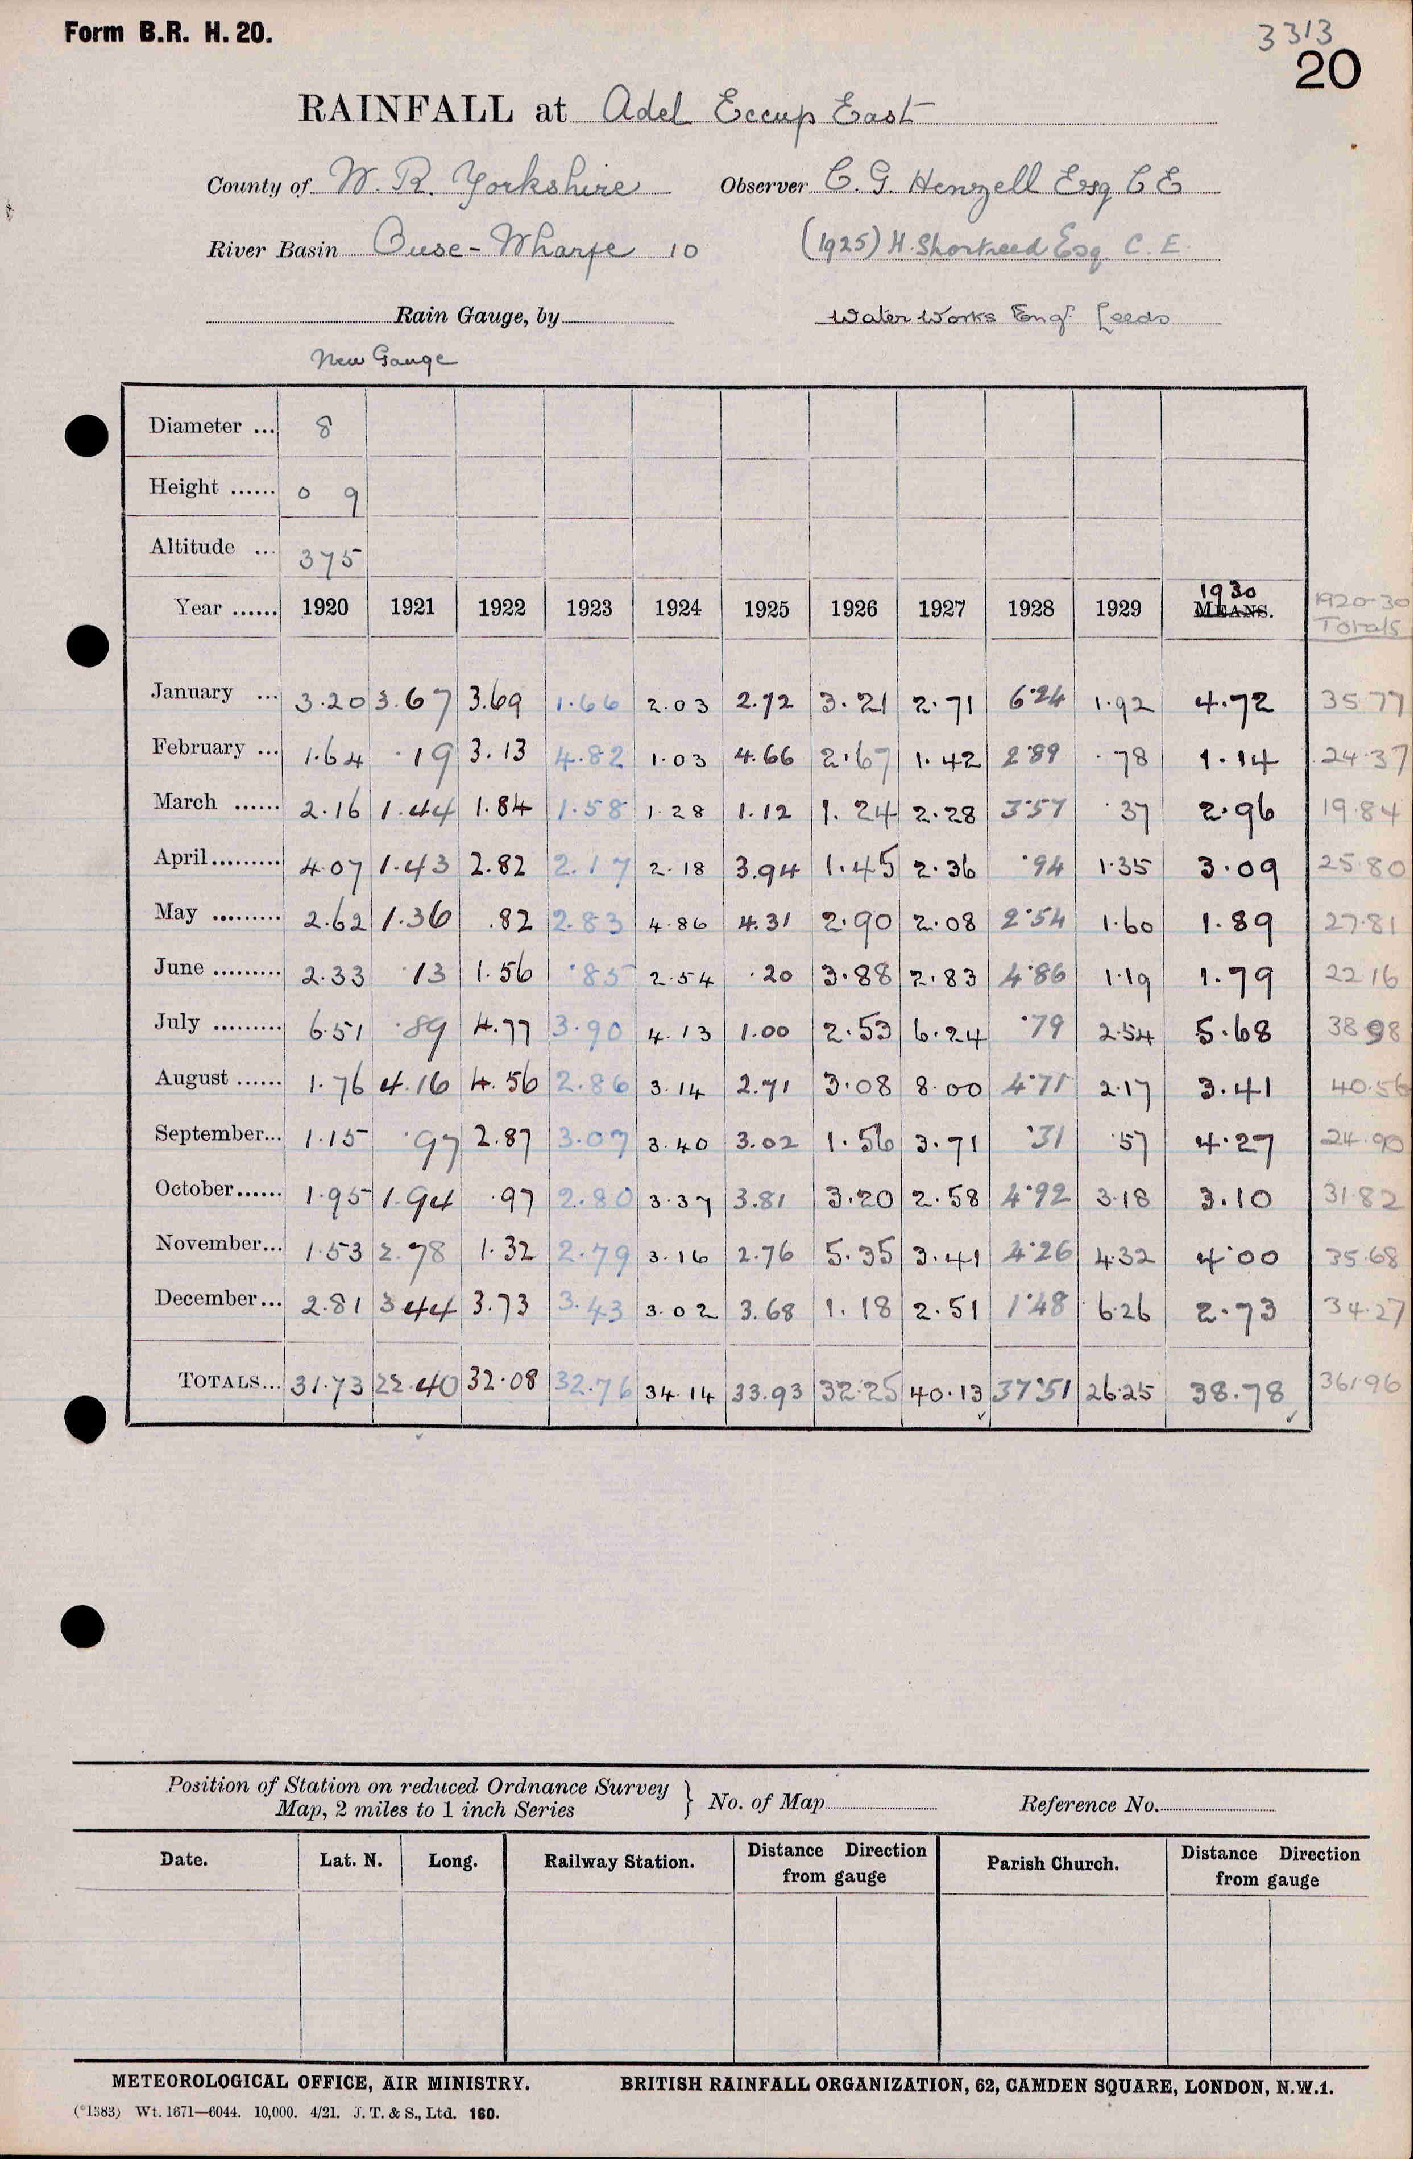 Form B.R. H. 20.
3313
20
RAINFALL at Adel Eccup East
County of W. R. Yorkshire Observer C. G. Henzell Esq C E
River Basin Ouse - Wharfe 10 (1925) H. Shortreed Esq. C. E.
Rain Gauge, by Water Works Engr Leeds
New Gauge
Diameter ... 8
Height ...... 0 9
Altitude ... 375
1930
Year ...... 1920 1921 1922 1923 1924 1925 1926 1927 1928 1929 MEANS. 1920-30 Totals
January ... 3.20 3.67 3.69 1.66 2.03 2.72 3.21 2.71 6.24 1.92 4.72 35.77
February ... 1.64 .19 3.13 4.82 1.03 4.66 2.67 1.42 2.89 .78 1.14 24.37
March ...... 2.16 1.44 1.84 1.58 1.28 1.12 1.24 2.28 3.57 .37 2.96 19.84
April......... 4.07 1.43 2.82 2.17 2.18 3.94 1.45 2.36 .94 1.35 3.09 25.80
May ......... 2.62 1.36 .82 2.83 4.86 4.31 2.90 2.08 2.54 1.60 1.89 27.81
June ......... 2.33 .13 1.56 .85 2.54 .20 3.88 2.83 4.86 1.19 1.79 22.16
July ......... 6.51 .89 4.77 3.90 4.13 1.00 2.53 6.24 .79 2.54 5.68 38.98
August ...... 1.76 4.16 4.56 2.86 3.14 2.71 3.08 8.00 4.71 2.17 3.41 40.56
September... 1.15 .97 2.87 3.07 3.40 3.02 1.56 3.71 .31 .57 4.27 24.90
October...... 1.95 1.94 .97 2.80 3.37 3.81 3.20 2.58 4.92 3.18 3.10 31.82
November... 1.53 2.78 1.32 2.79 3.16 2.76 5.35 3.41 4.26 4.32 4.00 35.68
December... 2.81 3.44 3.73 3.43 3.02 3.68 1.18 2.51 1.48 6.26 2.73 34.27
TOTALS... 31.73 22.40 32.08 32.76 34.14 33.93 32.25 40.13 37.51 26.25 38.78 361.96
Position of Station on reduced Ordnance Survey
Map, 2 miles to 1 inch Series } No. of Map Reference No.
Date. Lat. N. Long. Railway Station. Distance Direction from gauge Parish Church. Distance Direction from gauge
METEOROLOGICAL OFFICE, AIR MINISTRY. BRITISH RAINFALL ORGANIZATION, 62, CAMDEN SQUARE, LONDON, N.W.1.
(*1383) Wt. 1671—6044. 10,000. 4/21. J. T. & S., Ltd. 160.